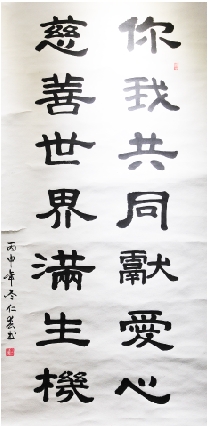 你我共同獻愛心
慈善世界滿生機
丙申年冬仁裳书